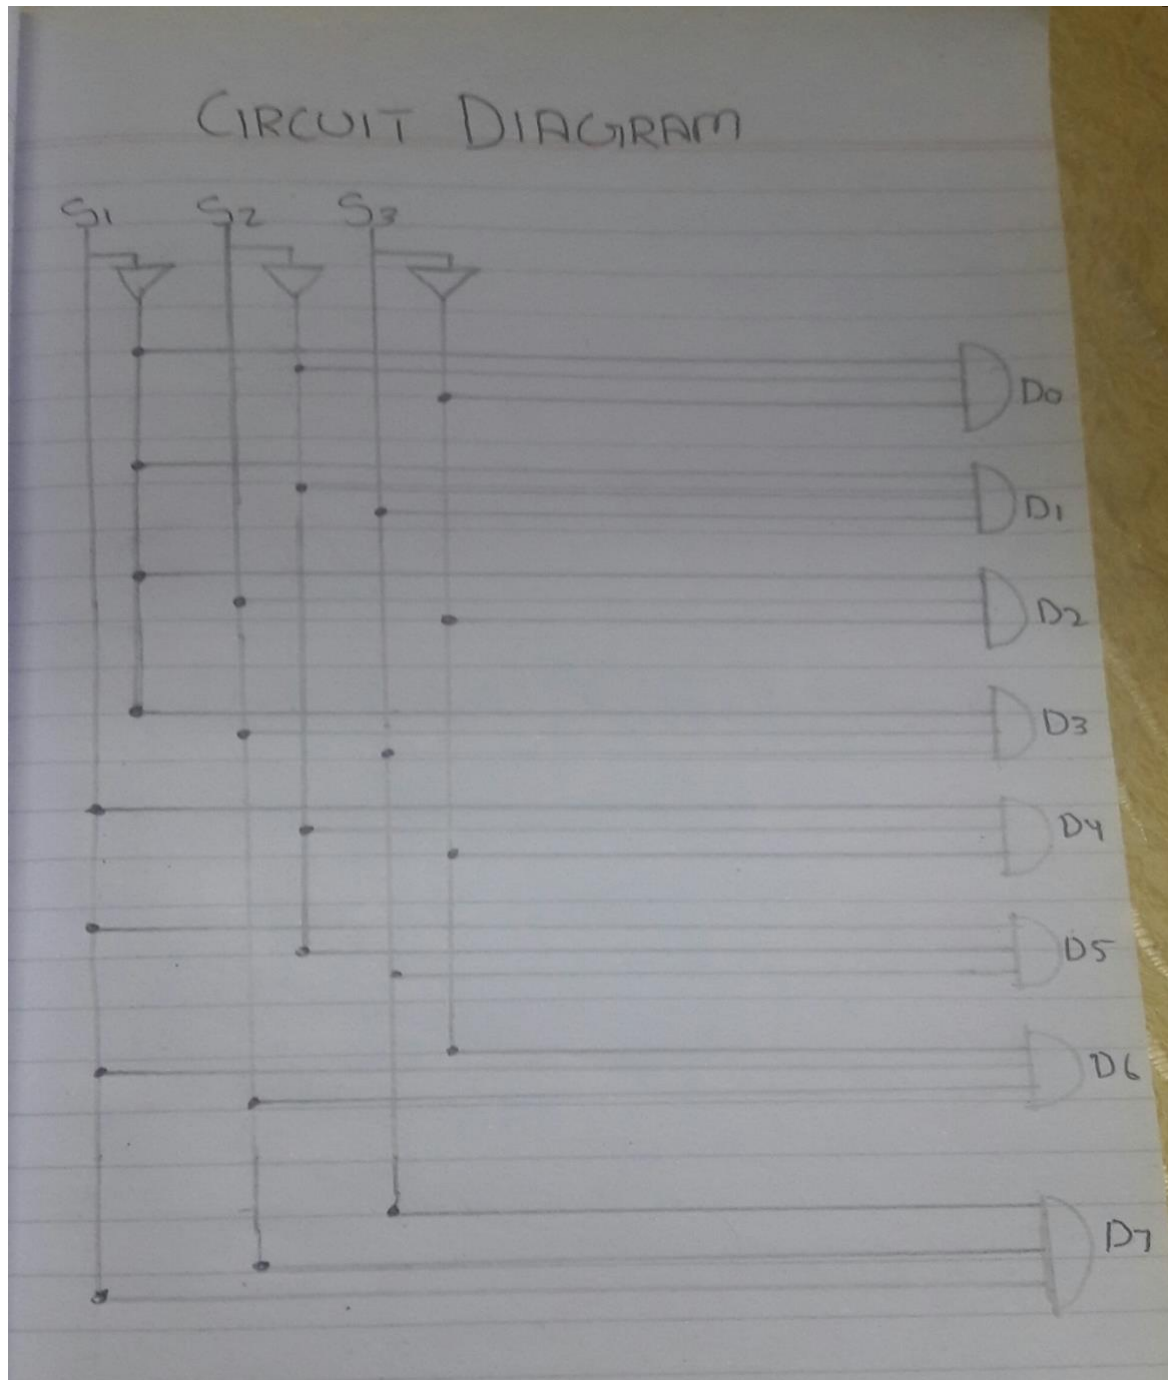 CIRCUIT DIAGRAM
S1 S2 S3
D0
D1
D2
D3
D4
D5
D6
D7